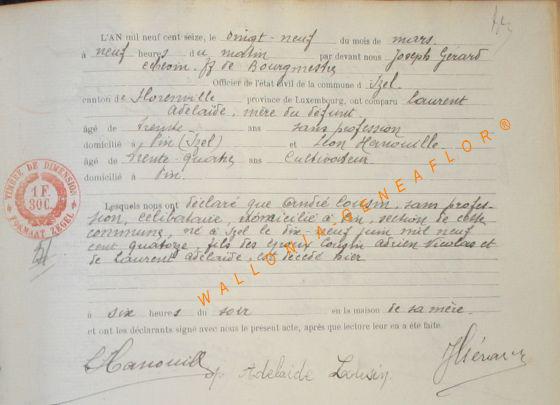 L'AN mil neuf cent seize, le vingt-neuf du mois de mars
à neuf heures du matin par devant nous Joseph Gérard
échevin ff de Bourgmestre
Officier de l'état civil de la commune d'Izel
canton de Florenville province de Luxembourg, ont comparu Laurent
Adelaïde, mère du défunt
âgé de trente ans sans profession
domicilié à Pin (Izel) et Léon Hanouille
âgé de trente-quatre ans Cultivateur
domicilié à Pin.
Lesquels nous ont déclaré que André Lousin, sans profes-
sion, célibataire, domicilié à Pin, section de cette
commune, né à Izel le dix-neuf juin mil neuf
cent quatorze, fils des époux Lousin Adrien Nicolas et
de Laurent Adelaïde, est décédé hier
à six heures du soir en la maison de sa mère.
et ont les déclarants signé avec nous le présent acte, après que lecture leur en a été faite.
LHanouille Adelaïde Lousin
TIMBRE DE DIMENSION
1 F.
30C.
FORMAAT ZEGEL
WALLONIA GENEAFLOR ®